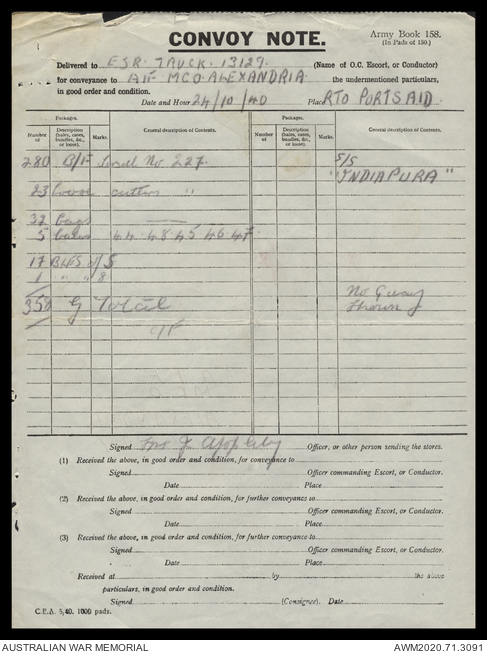 CONVOY NOTE.
Army Book 158.
(In Pads of 150.)
Delivered to ESR. TRUCK. 13129. (Name of O.C. Escort, or Conductor)
for conveyance to AIF MCO ALEXANDRIA the undermentioned particulars,
in good order and condition.
Date and Hour 24/10/40 Place RTO PORTSAID.
Packages. Packages.
Number of Description (bales, cases, bundles, &c., or loose). Marks. General description of Contents. Number of Description (bales, cases, bundles, &c., or loose). Marks. General description of Contents.
280 B/F Serial No 227. S/S
"INDIAPURA"
23 loose "
32 bags
5 bales 44. 48. 45 46. 47.
17 BLES of 5
1 " " 8
358 G Total No
Shown
Signed Officer, or other person sending the stores.
(1) Received the above, in good order and condition, for conveyance to
Signed Officer commanding Escort, or Conductor.
Date Place
(2) Received the above, in good order and condition, for further conveyance to
Signed Officer commanding Escort, or Conductor.
Date Place
(3) Received the above, in good order and condition, for further conveyance to
Signed Officer commanding Escort, or Conductor.
Date Place
Received at by the above
particulars, in good order and condition.
Signed (Consignee). Date
C.E.A. 5/40. 1000 pads.
AUSTRALIAN WAR MEMORIAL AWM2020.71.3091